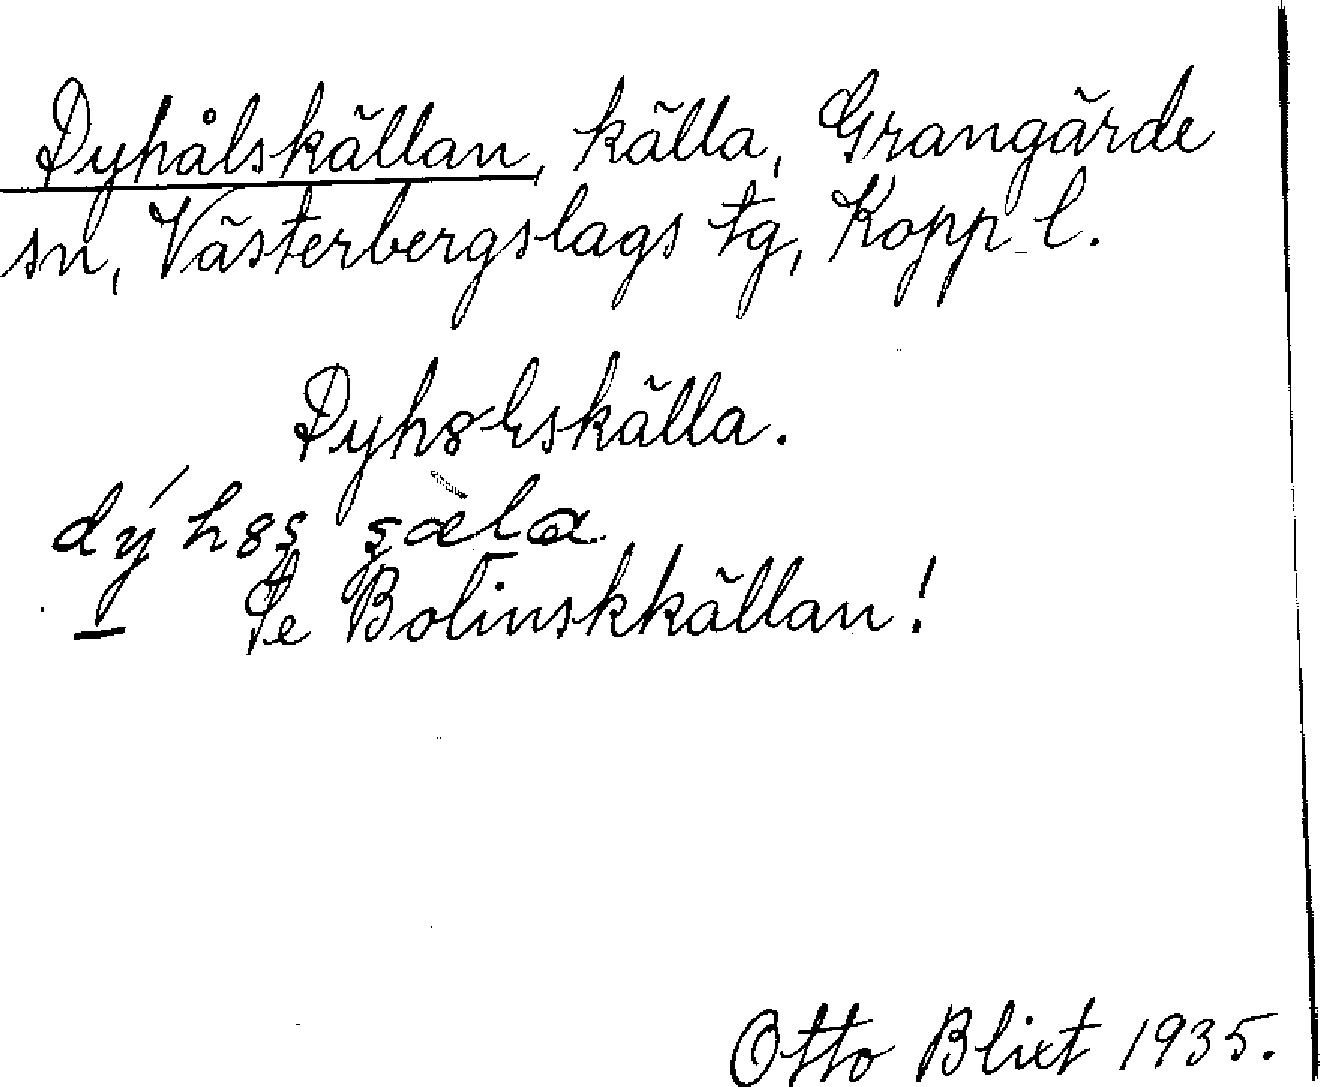 Dyhålskällan, källa, Grangärde
sn, Västerbergslags tg, Kopp. l.
Dyhȣlskälla.
Se Bolinskkällan!
Otto Blixt 1935.